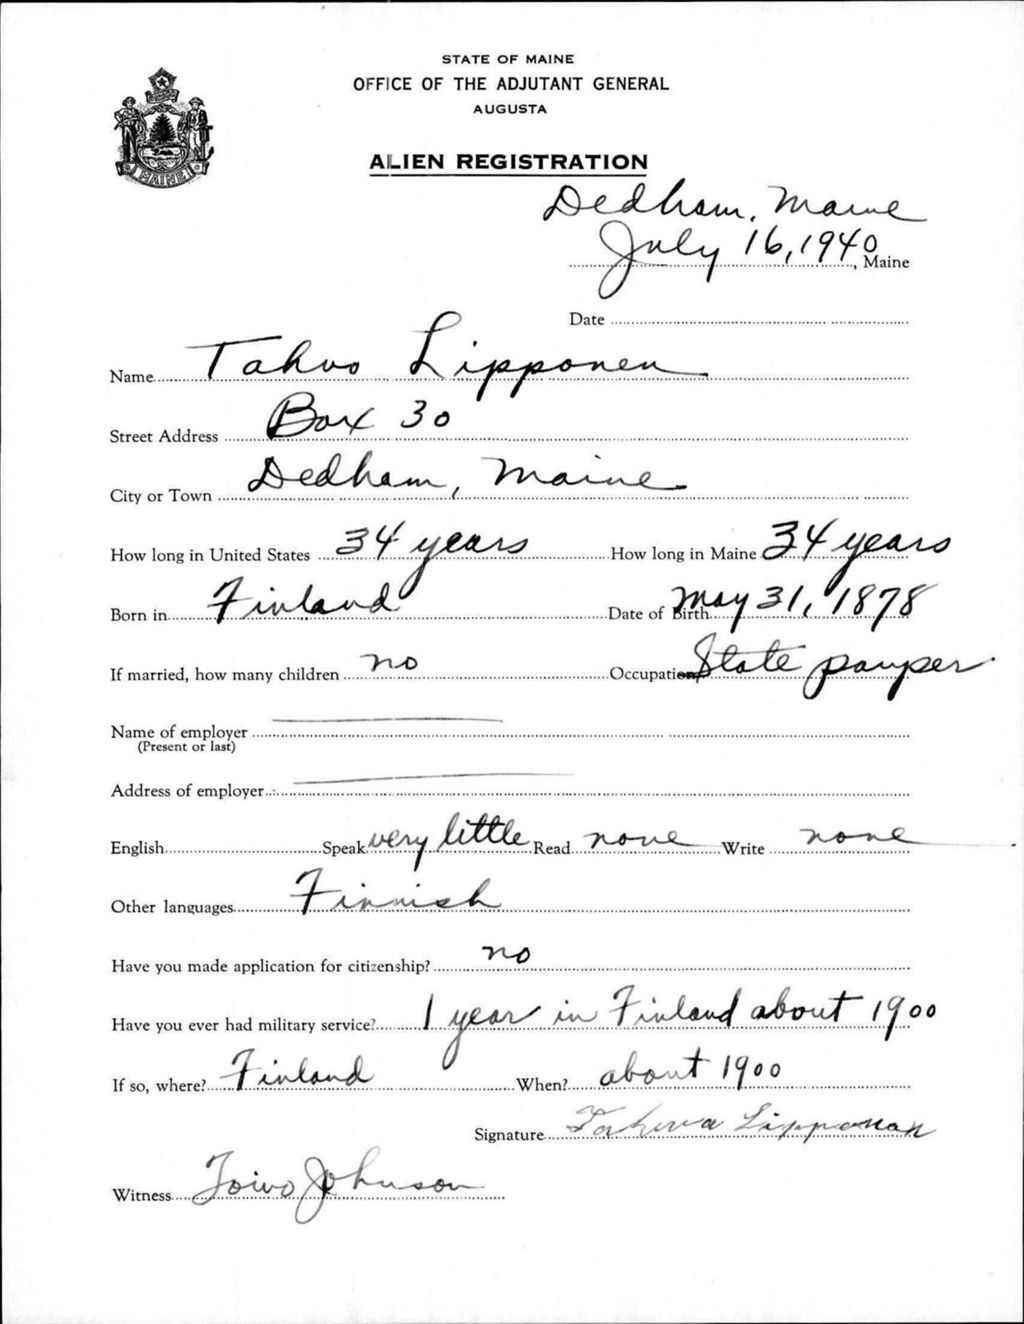 STATE OF MAINE
OFFICE OF THE ADJUTANT GENERAL
AUGUSTA
ALIEN REGISTRATION
MAINE
Dedham, Maine
July 16, 1940, Maine
Date
Name Tahvo Lipponen
Street Address Box 30
City or Town Dedham, Maine
How long in United States 34 years How long in Maine 34 years
Born in Finland Date of Birth May 31, 1878
If married, how many children no Occupation State pauper
Name of employer
(Present or last)
Address of employer
English Speak very little Read none Write none
Other languages Finnish
Have you made application for citizenship? no
Have you ever had military service? 1 year in Finland about 1900
If so, where? Finland When? about 1900
Signature Tahwa Lipponan
Witness Toivo Johnson